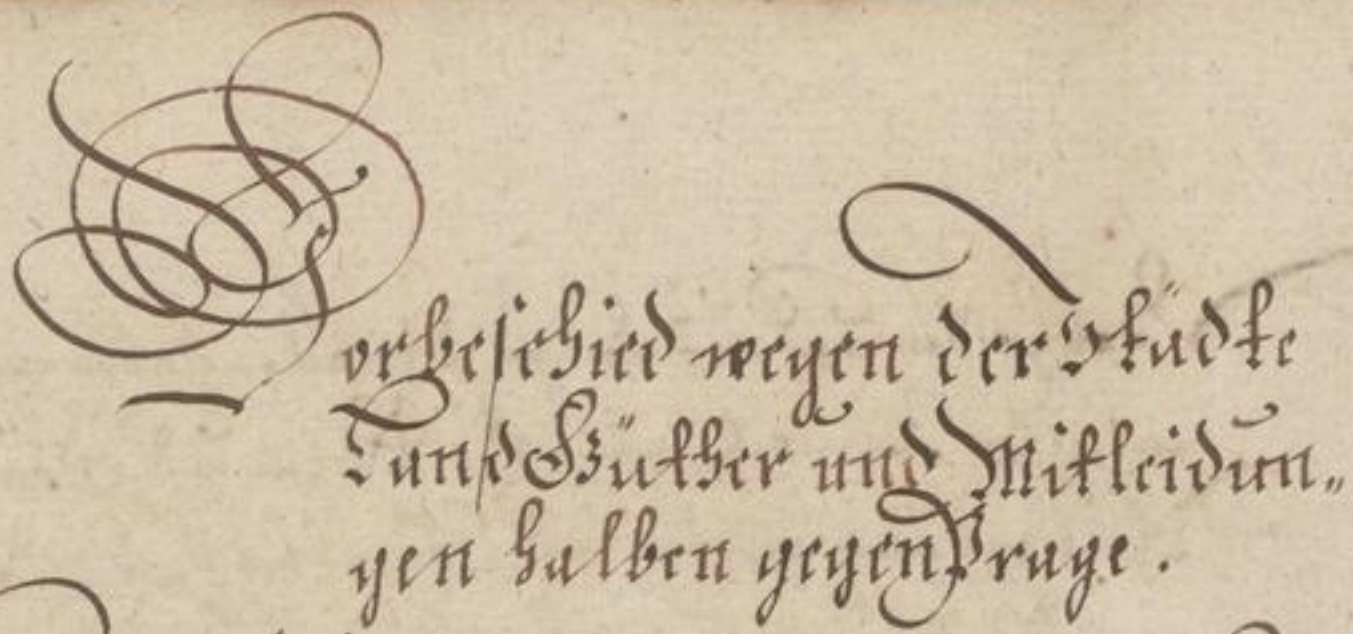 Vorbeschied wegen der Städte
Land Güther und Mitleidun„
gen halben gegen Prage.